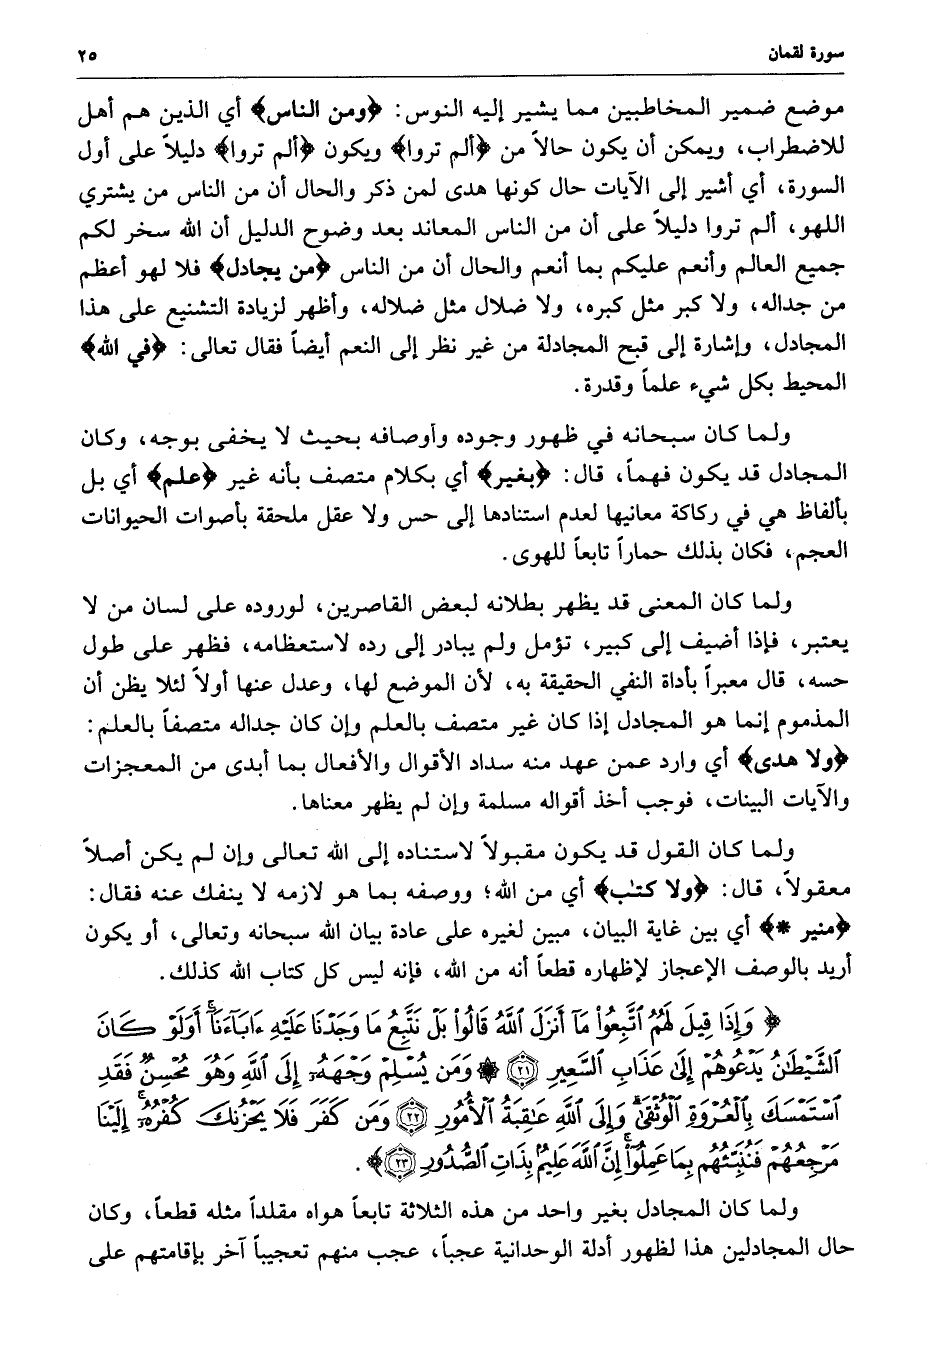 سورة لقمان
٢٥
موضع ضمير المخاطبين مما يشير إليه النوس: ﴿ومن الناس﴾ أي الذين هم أهل
للاضطراب، ويمكن أن يكون حالاً من ﴿ألم تروا﴾ ويكون ﴿ألم تروا﴾ دليلاً على أول
السورة، أي أشير إلى الآيات حال كونها هدى لمن ذكر والحال أن من الناس من يشتري
اللهو، ألم تروا دليلاً على أن من الناس المعاند بعد وضوح الدليل أن الله سخر لكم
جميع العالم وأنعم عليكم بما أنعم والحال أن من الناس ﴿من يجادل﴾ فلا لهو أعظم
من جداله، ولا كبر مثل كبره، ولا ضلال مثل ضلاله، وأظهر لزيادة التشنيع على هذا
المجادل، وإشارة إلى قبح المجادلة من غير نظر إلى النعم أيضاً فقال تعالى: ﴿في الله﴾
المحيط بكل شيء علماً وقدرة.
ولما كان سبحانه في ظهور وجوده وأوصافه بحيث لا يخفى بوجه، وكان
المجادل قد يكون فهماً، قال: ﴿بغير﴾ أي بكلام متصف بأنه غير ﴿علم﴾ أي بل
بألفاظ هي في ركاكة معانيها لعدم استنادها إلى حس ولا عقل ملحقة بأصوات الحيوانات
العجم، فكان بذلك حماراً تابعاً للهوى.
ولما كان المعنى قد يظهر بطلانه لبعض القاصرين، لوروده على لسان من لا
يعتبر، فإذا أضيف إلى كبير، تؤمل ولم يبادر إلى رده لاستعظامه، فظهر على طول
حسه، قال معبراً بأداة النفي الحقيقة به، لأن الموضع لها، وعدل عنها أولاً لئلا يظن أن
المذموم إنما هو المجادل إذا كان غير متصف بالعلم وإن كان جداله متصفاً بالعلم:
﴿ولا هدى﴾ أي وارد عمن عهد منه سداد الأقوال والأفعال بما أبدى من المعجزات
والآيات البينات، فوجب أخذ أقواله مسلمة وإن لم يظهر معناها.
ولما كان القول قد يكون مقبولاً لاستناده إلى الله تعالى وإن لم يكن أصلاً
معقولاً، قال: ﴿ولا كتٰب﴾ أي من الله؛ ووصفه بما هو لازمه لا ينفك عنه فقال:
﴿منير *﴾ أي بين غاية البيان، مبين لغيره على عادة بيان الله سبحانه وتعالى، أو يكون
أريد بالوصف الإعجاز لإظهاره قطعاً أنه من الله، فإنه ليس كل كتاب الله كذلك.
﴿ وَإِذَا قِيلَ لَهُمُ ٱتَّبِعُوا۟ مَآ أَنزَلَ ٱللَّهُ قَالُوا۟ بَلْ نَتَّبِعُ مَا وَجَدْنَا عَلَيْهِ ءَابَآءَنَآ ۚ أَوَلَوْ كَانَ
ٱلشَّيْطَٰنُ يَدْعُوهُمْ إِلَىٰ عَذَابِ ٱلسَّعِيرِ ﴿٢١﴾ ۞ وَمَن يُسْلِمْ وَجْهَهُۥٓ إِلَى ٱللَّهِ وَهُوَ مُحْسِنٌ فَقَدِ
ٱسْتَمْسَكَ بِٱلْعُرْوَةِ ٱلْوُثْقَىٰ ۗ وَإِلَى ٱللَّهِ عَٰقِبَةُ ٱلْأُمُورِ ﴿٢٢﴾ وَمَن كَفَرَ فَلَا يَحْزُنكَ كُفْرُهُۥٓ ۚ إِلَيْنَا
مَرْجِعُهُمْ فَنُنَبِّئُهُم بِمَا عَمِلُوٓا۟ ۚ إِنَّ ٱللَّهَ عَلِيمٌۢ بِذَاتِ ٱلصُّدُورِ ﴿٢٣﴾ ﴾.
ولما كان المجادل بغير واحد من هذه الثلاثة تابعاً هواه مقلداً مثله قطعاً، وكان
حال المجادلين هذا لظهور أدلة الوحدانية عجباً، عجب منهم تعجيباً آخر بإقامتهم على